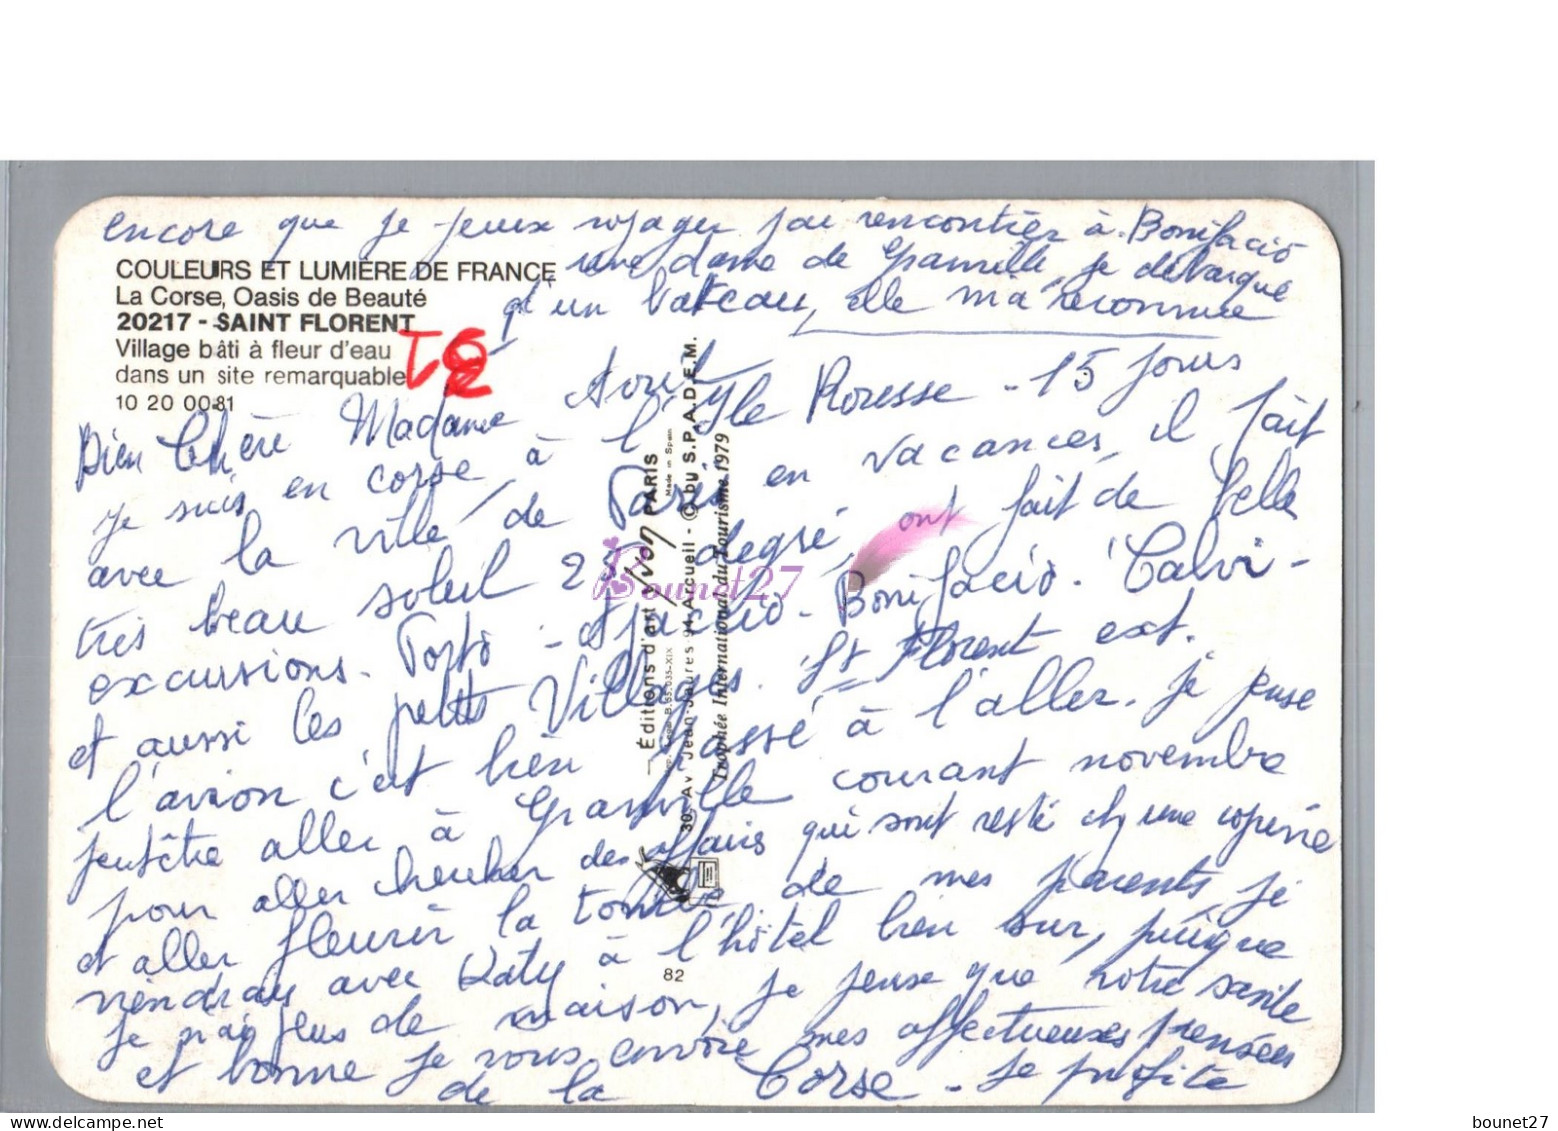 encore que je peux voyager j'ai rencontrér à Bonifacio
une dame de Granville, je debarque
d'un bateau, elle m'a reconnue
COULEURS ET LUMIÈRE DE FRANCE
La Corse, Oasis de Beauté
20217 - SAINT FLORENT
Village bâti à fleur d'eau
dans un site remarquable
10 20 0081
Bien Chère Madame
je suis en corse, à l'Yle Rousse - 15 jours
avec la ville de Paris en vacances, il fait
très beau soleil 25 degré ont fait de belle
excursions. Porto - Ajaccio - Bonifacio - Calvi -
et aussi les petits Villages. St Florent ext.
l'avion c'est bien passé à l'aller. je pense
peutêtre aller à Granville courant novembre
pour aller chercher des affairs qui sont resté une copine
et aller fleurir la tombe de mes parents, je
viendrais avec Katy à l'hôtel bien sur, puisque
je n'ai plus de maison, je pense que votre santé
et bonne je vous envoie mes affectueuses pensées
de la Corse - je profite
Éditions d'art Yvon PARIS
Made in Spain
30, Av. Jean-Jaurès-94-Arcueil - © by S.P.A.D.E.M.
Trophée International du Tourisme 1979
82
Bounet27
bounet27